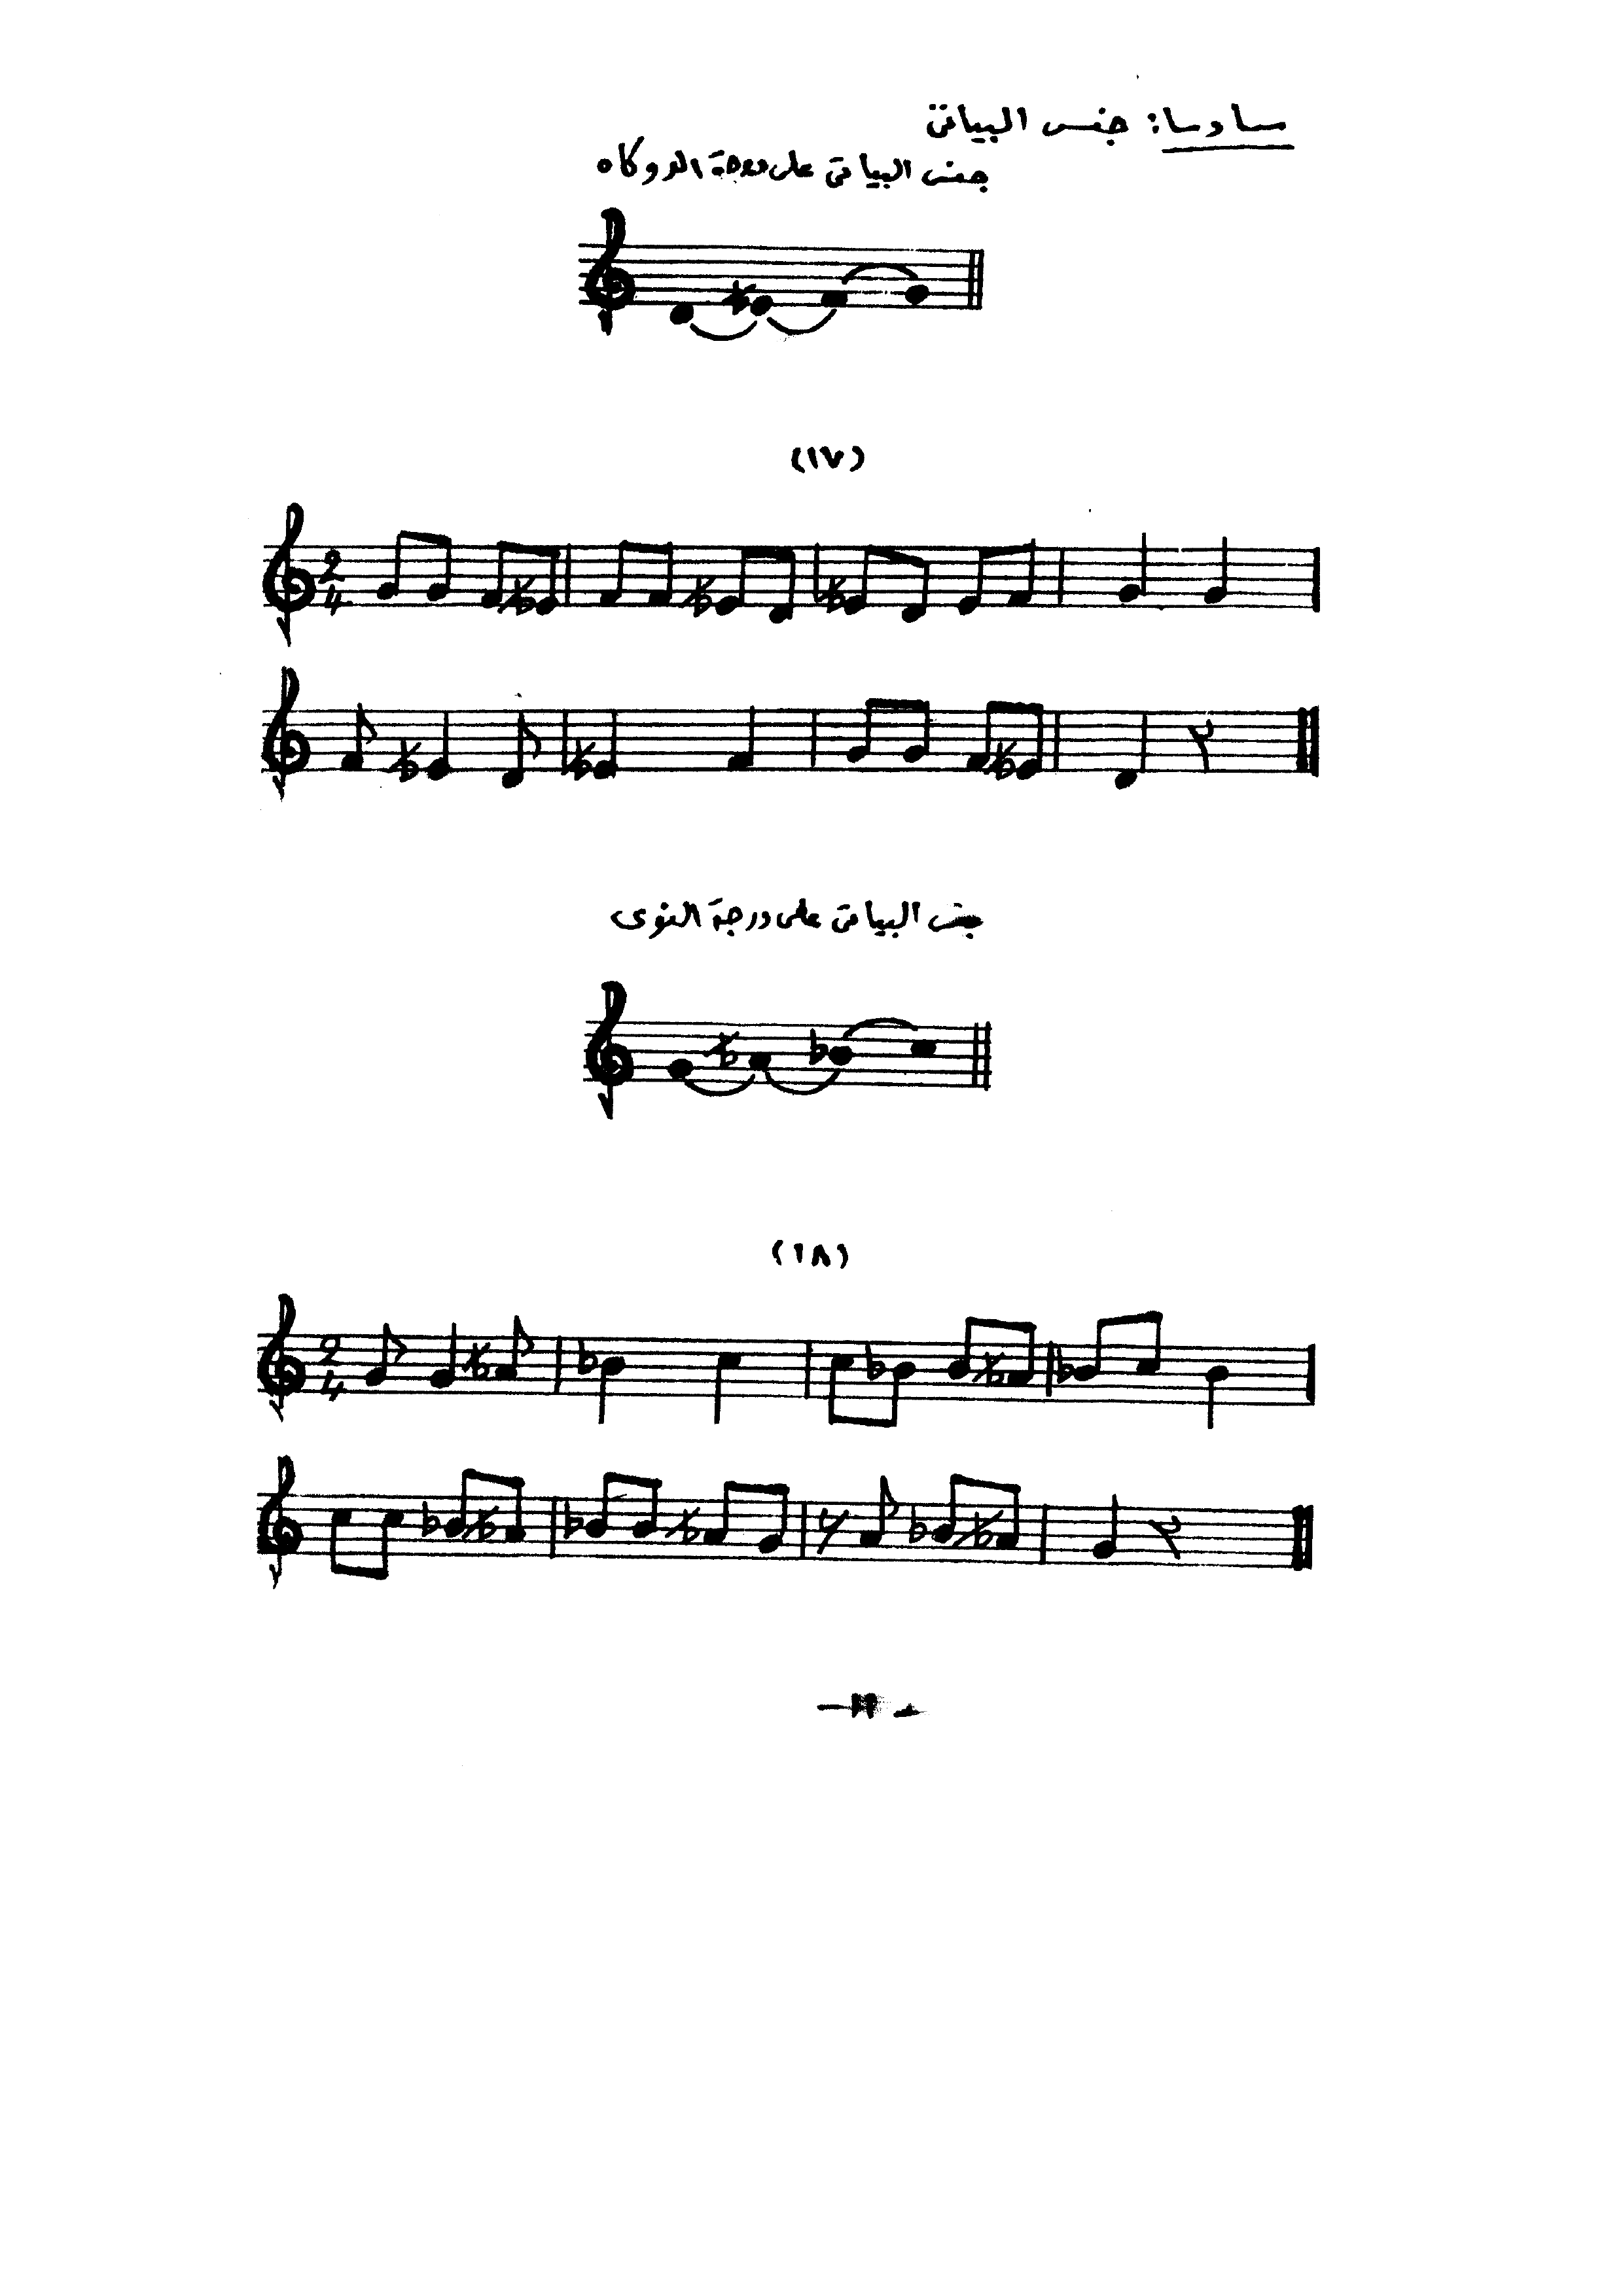 سادسا: جنس البياتى
جنس البياتى على درجة الدوكاه
(١٧)
2
4
جنس البياتى على درجة النوى
(١٨)
2
4